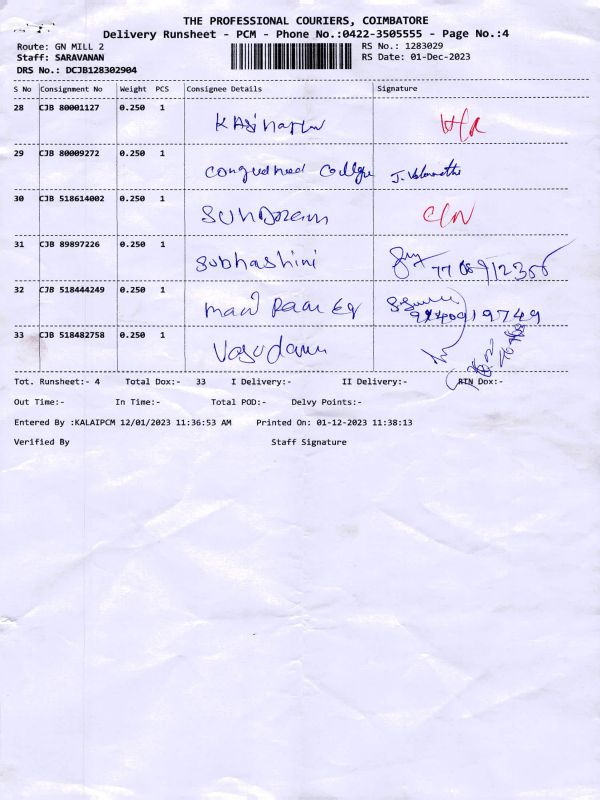 THE PROFESSIONAL COURIERS, COIMBATORE
Delivery Runsheet - PCM - Phone No.:0422-3505555 - Page No.:4
Route: GN MILL 2 RS No.: 1283029
Staff: SARAVANAN RS Date: 01-Dec-2023
DRS No.: DCJB128302904
S No Consignment No Weight PCS Consignee Details Signature
28 CJB 80001127 0.250 1
29 CJB 80009272 0.250 1 College
30 CJB 518614002 0.250 1
31 CJB 89897226 0.250 1 Subhashini
32 CJB 518444249 0.250 1
33 CJB 518482758 0.250 1
Tot. Runsheet:- 4 Total Dox:- 33 I Delivery:- II Delivery:- RTN Dox:-
Out Time:- In Time:- Total POD:- Delvy Points:-
Entered By :KALAIPCM 12/01/2023 11:36:53 AM Printed On: 01-12-2023 11:38:13
Verified By Staff Signature